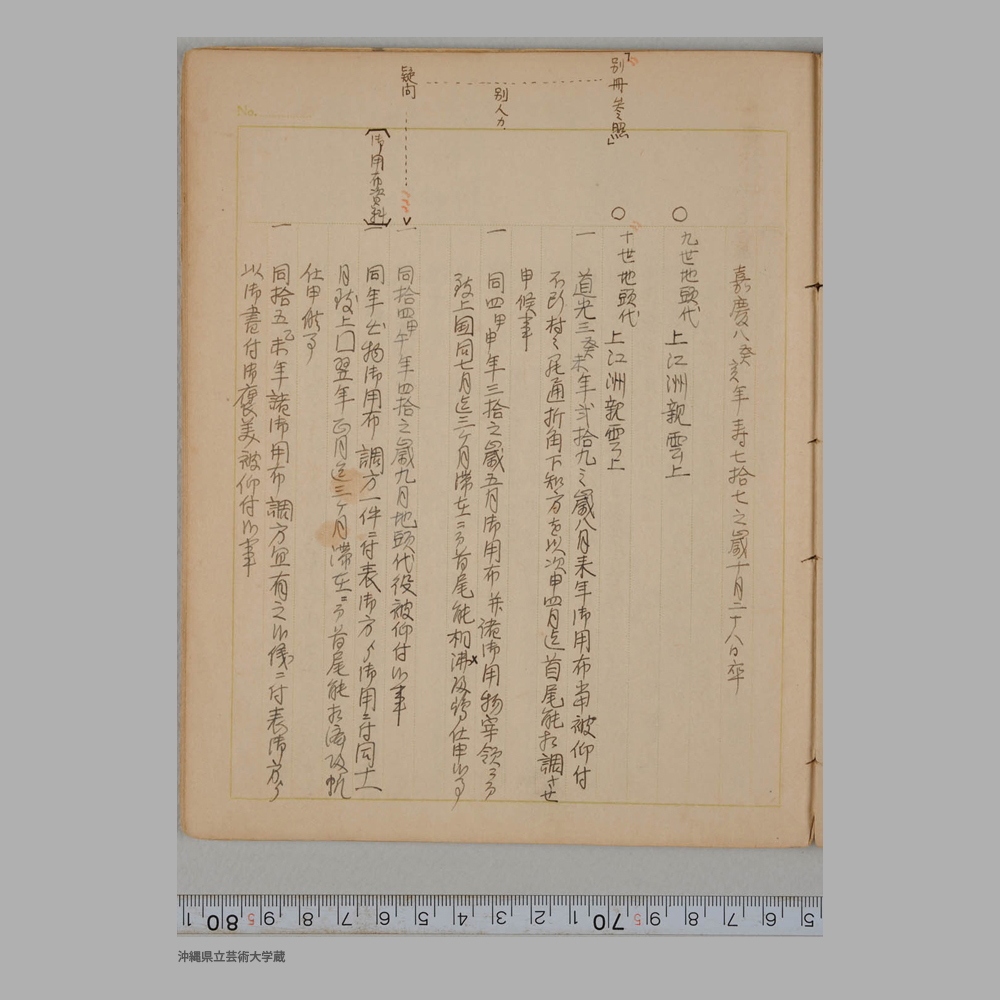 嘉慶八癸亥年寿七拾七之歳十月二十八日卒
○ 九世地頭代 上江洲親雲上
○ 十世地頭代 上江洲親雲上
「別冊参照」
別人カ
疑問
(御用布資料)
一 道光三癸未年弐拾九之歳八月来年御用布当被仰付
不所村々罷通折角下知方を以次申四月迄首尾能相調させ
申候事
一 同四甲申年三拾之歳五月御用布并諸御用物宰領ニ而
致上国同七月迄三ケ月滞在ニ而首尾能相済帰仕申候事
一 同拾四甲午年四拾之歳九月地頭代役被仰付候事
一 同年出物御用布調方一件ニ付表御方より御用ニ付同十一
月致上国翌年正月迄三ケ月滞在ニ而首尾能相済帰帆
仕申候事
一 同拾五乙未年諸御用布調方宜有之候儀ニ付表御方より
以御書付御褒美被仰付候事
No.
沖縄県立芸術大学蔵